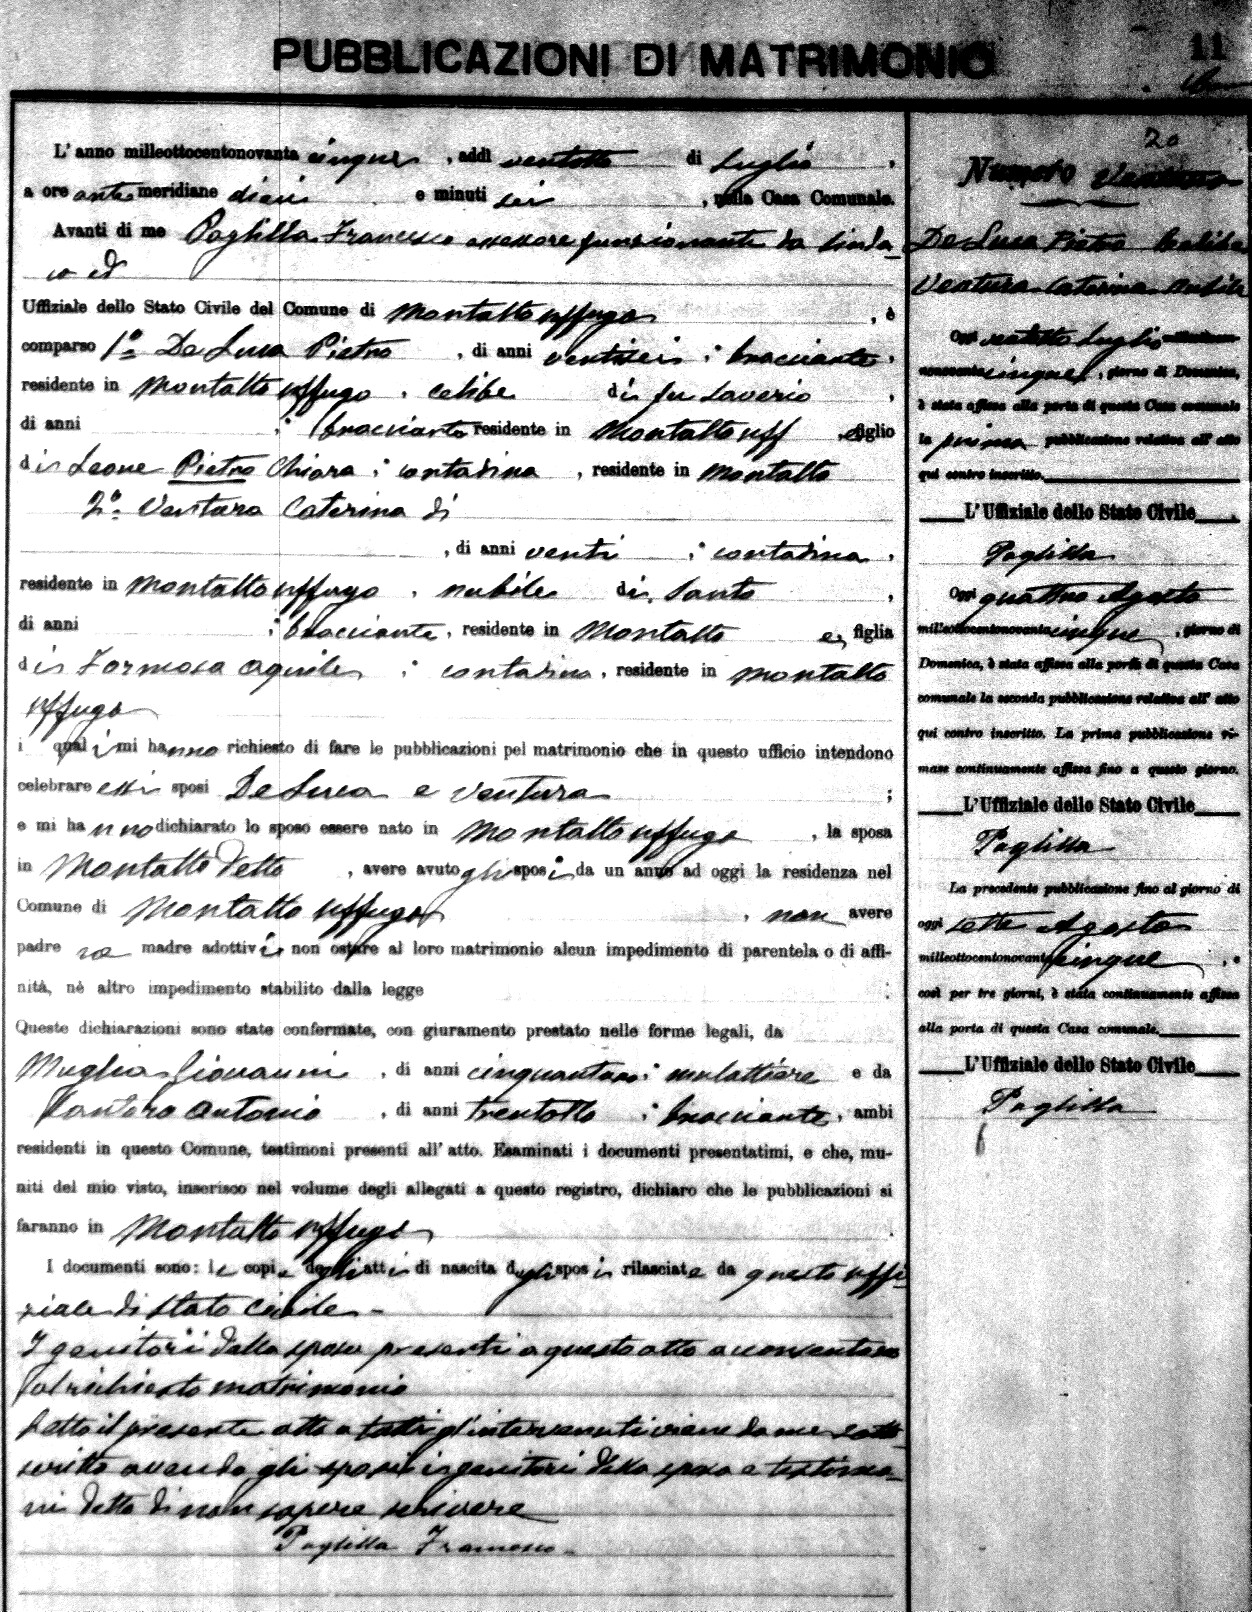 PUBBLICAZIONI DI MATRIMONIO
11
L'anno milleottocentonovanta cinque, addì ventotto di Luglio,
a ore antemeridiane dieci e minuti sei, nella Casa Comunale.
Avanti di me Paglilla Francesco assessore funzionante da Sinda
co ed
Uffiziale dello Stato Civile del Comune di Montalto uffugo, è
comparso 1º De Luca Pietro, di anni ventisei; bracciante,
residente in Montalto uffugo, celibe di fu Saverio,
di anni ; bracciante residente in Montalto uff, e figlio
di Leone Pietro Chiara; contadina, residente in Montalto
2º Ventura Caterina di
, di anni venti; contadina,
residente in Montalto uffugo, nubile di Santo,
di anni ; bracciante, residente in Montalto e figlia
di Formosa Aquile; contadina, residente in Montalto
uffugo
i quali mi hanno richiesto di fare le pubblicazioni pel matrimonio che in questo ufficio intendono
celebrare essi sposi De Luca e Ventura;
e mi hanno dichiarato lo sposo essere nato in Montalto uffugo, la sposa
in Montalto detto, avere avuto gli sposi da un anno ad oggi la residenza nel
Comune di Montalto uffugo, non avere
padre nè madre adottivi non ostare al loro matrimonio alcun impedimento di parentela o di affi-
nità, nè altro impedimento stabilito dalla legge :
Queste dichiarazioni sono state confermate, con giuramento prestato nelle forme legali, da
Muglia Giovanni, di anni cinquantuno; mulattiere e da
Santoro Antonio, di anni trentotto; bracciante, ambi
residenti in questo Comune, testimoni presenti all'atto. Esaminati i documenti presentatimi, e che, mu-
niti del mio visto, inserisco nel volume degli allegati a questo registro, dichiaro che le pubblicazioni si
faranno in Montalto uffugo.
I documenti sono: le copie degli atti di nascita degli sposi rilasciate da questo uffi
ziale di stato civile-
I genitori della sposa presenti a questo atto acconsentono
al richiesto matrimonio
Letto il presente atto a tutti gl'intervenuti viene da me sotto
scritto avendo gli sposi i genitori della sposa e testimo
ni detto di non sapere scrivere
Paglilla Francesco
20
Numero
De Luca Pietro Celibe
Ventura Caterina Nubile
Oggi ventotto Luglio milleottocento-
novantacinque, giorno di Domenica,
è stata affissa alla porta di questa Casa comunale
la prima pubblicazione relativa all'atto
qui contro inscritto.
L'Uffiziale dello Stato Civile
Paglilla
Oggi quattro Agosto
milleottocentonovantacinque, giorno di
Domenica, è stata affissa alla porta di questa Casa
comunale la seconda pubblicazione relativa all'atto
qui contro inscritto. La prima pubblicazione ri-
mase continuamente affissa fino a questo giorno.
L'Uffiziale dello Stato Civile
Paglilla
La precedente pubblicazione fino al giorno di
oggi sette Agosto
milleottocentonovantacinque, e
così per tre giorni, è stata continuamente affissa
alla porta di questa Casa comunale.
L'Uffiziale dello Stato Civile
Paglilla